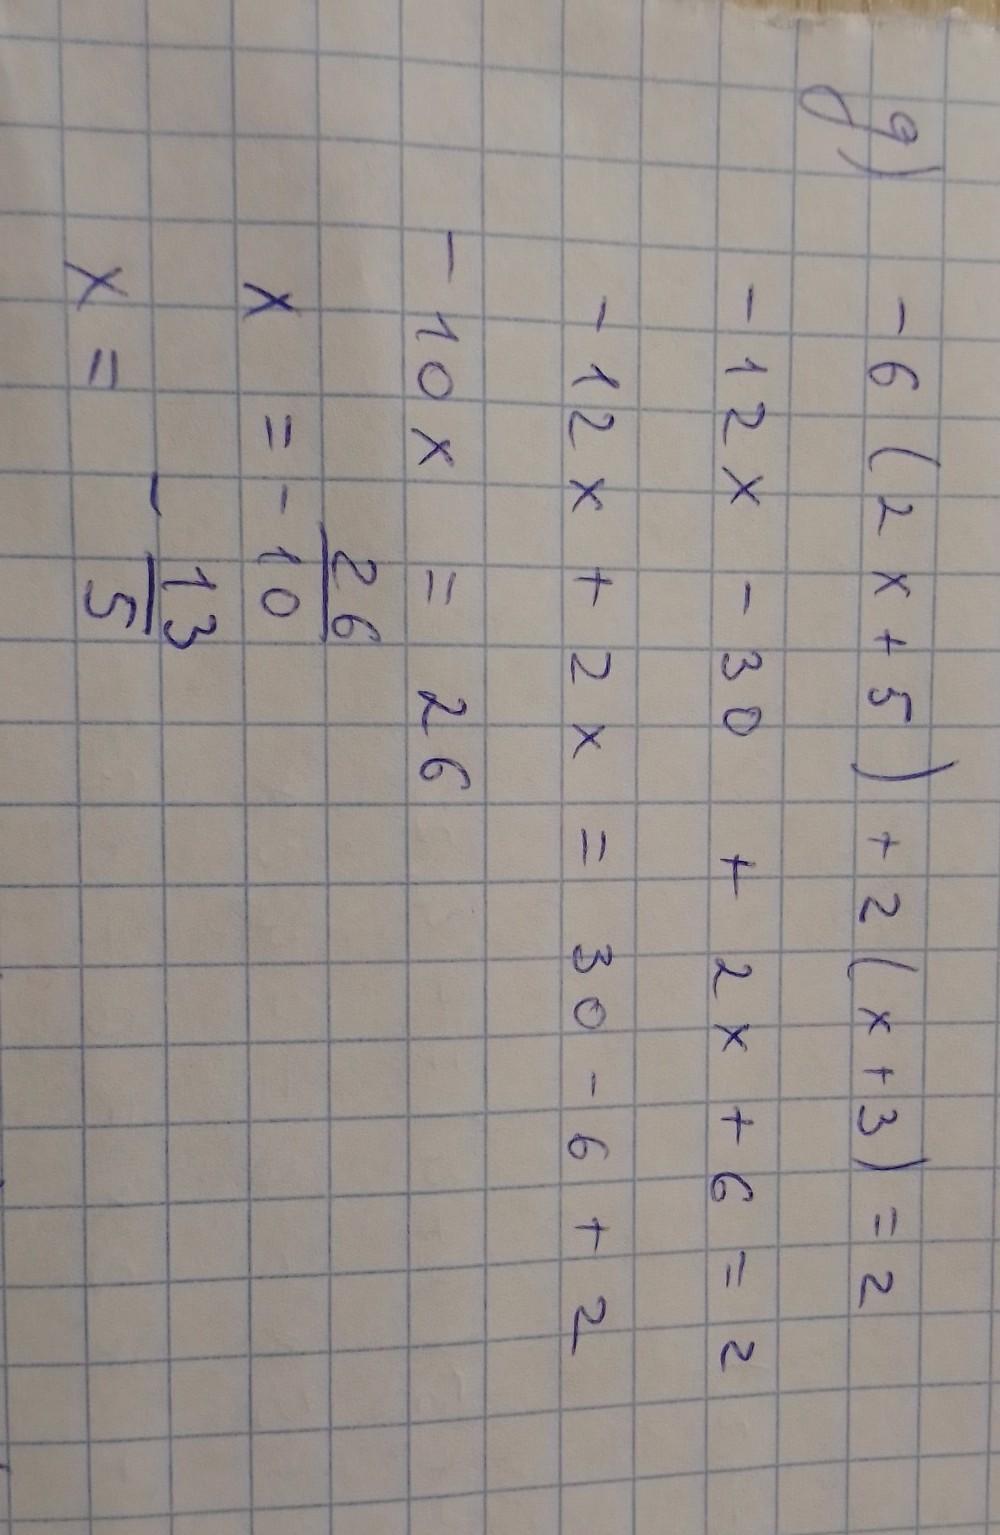 g) -6(2x+5)+2(x+3)=2
-12x-30+2x+6=2
-12x+2x=30-6+2
-10x=26
x=26/-10
x=-13/5